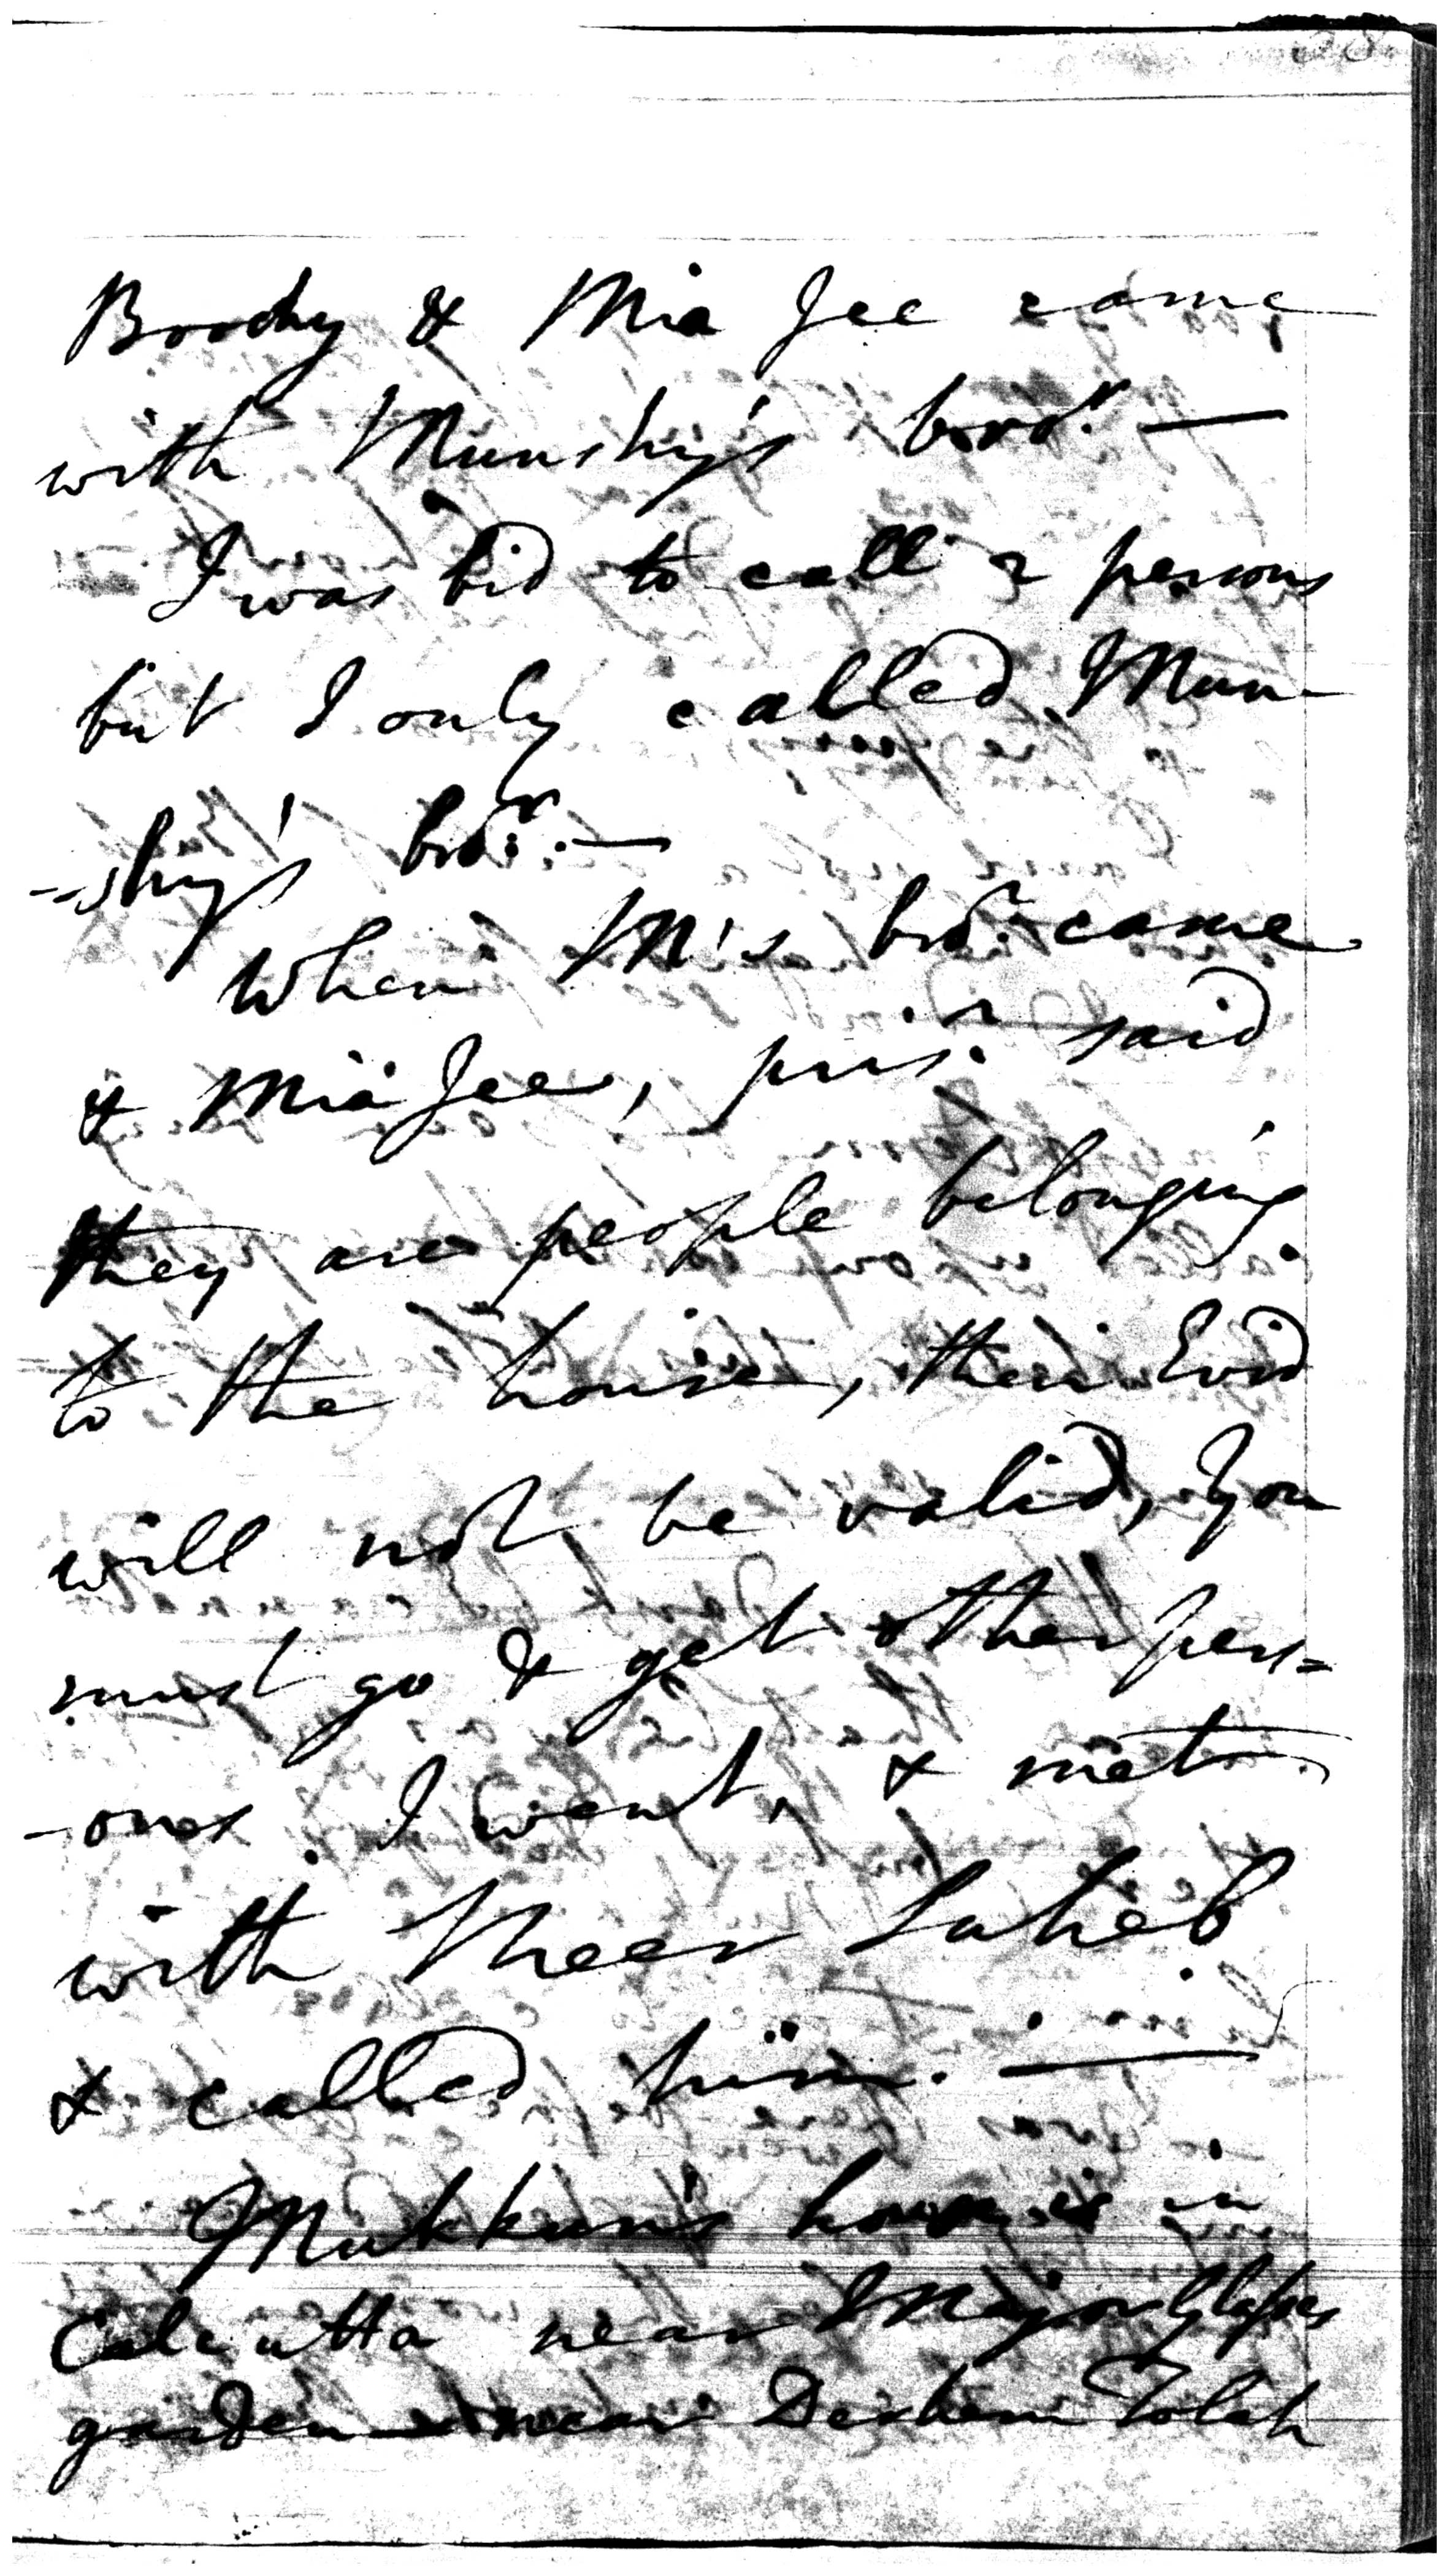 Boody & Mia Jee came
with Munshy's bror. —
I was bid to call 2 persons
but I only called Mun-
-shy's bror. —
When M's bror. came
& Mia Jee, prisr. said
they are people belonging
to the house, their Evid
will not be valid, You
must go & get other pers=
-ons. I went, & met
with Meer Saheb
& called him. —
Mukkun's house is in
Calcutta near Major
garden near Tolah